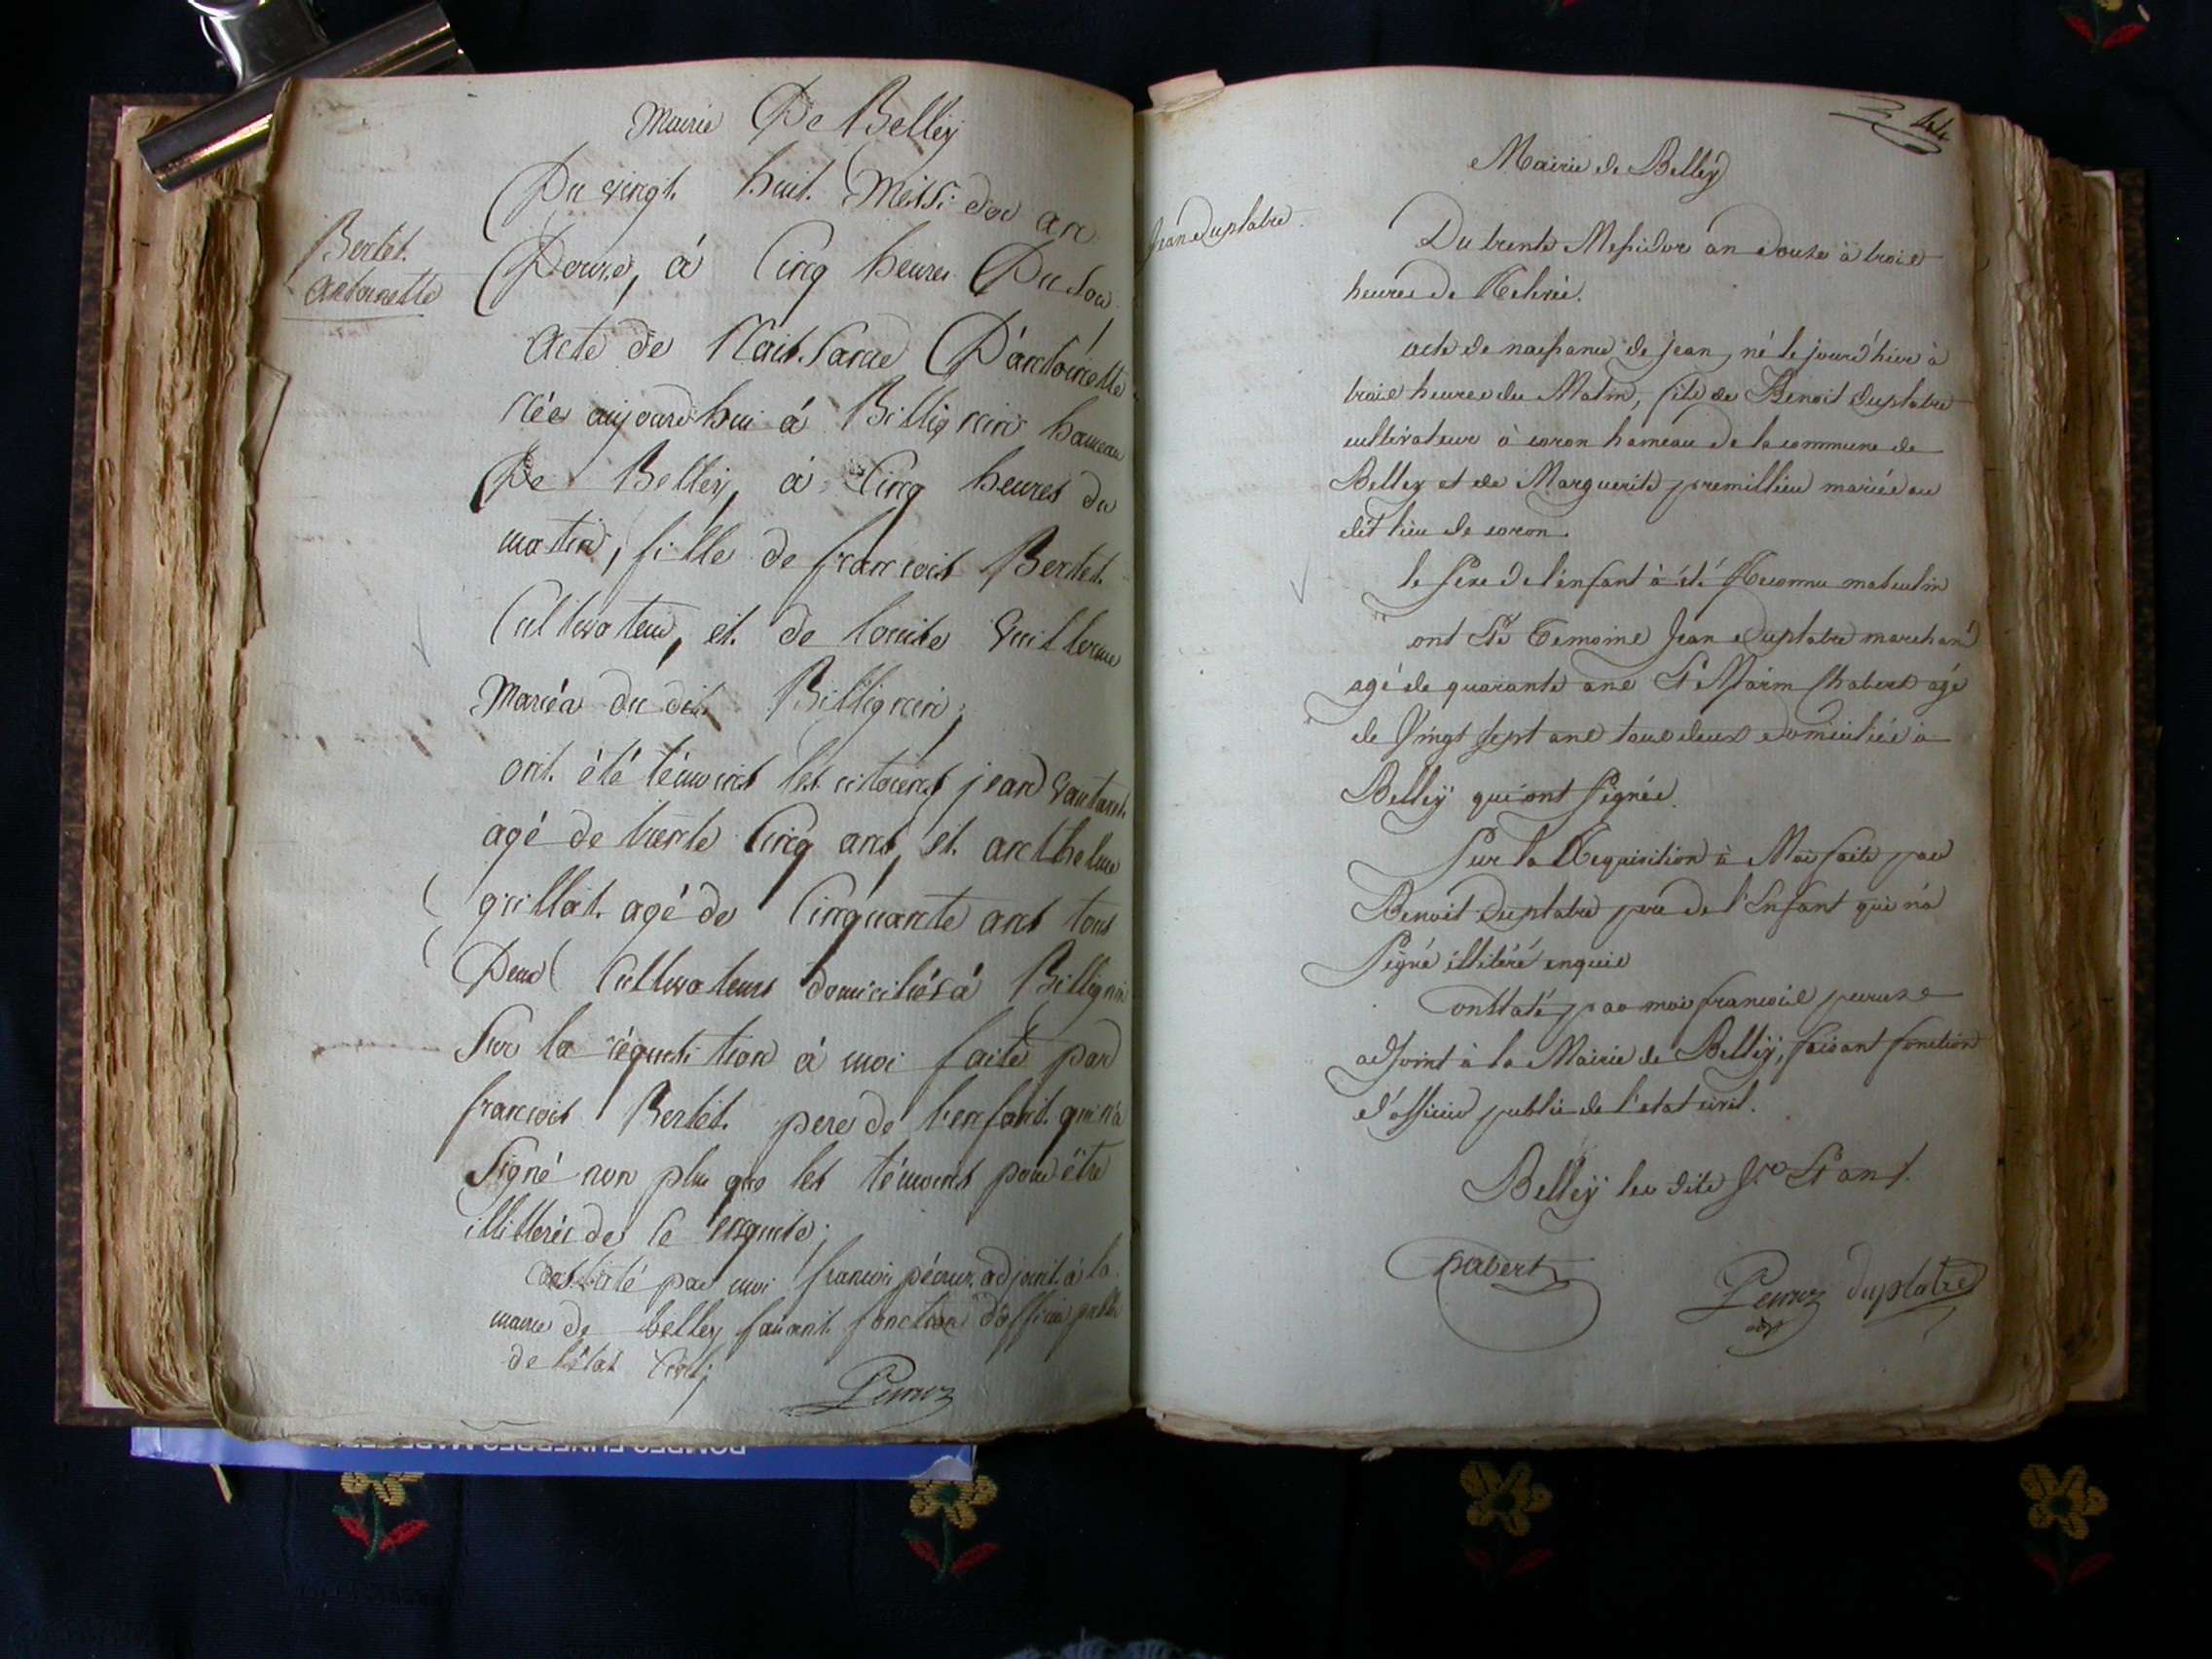 Mairie De Belley
Du vingt huit Messidor an
Bertet
Antoinette
Douze, à Cinq heures Du Soir
Acte de Naissance D'antoinette
née aujourd'hui à Billignin hameau
De Belley, à Cinq heures du
matin, fille de francois Bertet
Cultivateur, et de louise Guillerme
Mariéa du dit Billignin;
ont été témoins les citoiens jean
agé de trente Cinq ans, et anthelme
guillot agé de Cinquante ans tous
Deux Cultivateurs domiciliés à Billignin
Sur la réquisition à moi faite par
francois Bertet pere de l'enfant qui n'a
Signé non plus que les témoins pour être
illitterés de ce enquis;
Constaté par moi francois péruz adjoint à la
mairie de belley faisant fonction d'officier public
de l'état Civil;
Peruz
44
Mairie de Belley
Jean Duplatre
Du trente Messidor an douze à trois
heures de Relevée.
acte de naissance de jean, né le jourd'hier à
trois heures du Matin, fils de Benoit duplatre
cultivateur à coron hameau de la commune de
Belley et de Marguerite premillieu mariée au
dit lieu de coron.
le Sexe de l'enfant à été Reconnu masculin
ont Eté Temoins Jean Duplatre marchand
agé de quarante ans Et Marin Chabert agé
de Vingt Sept ans tous deux domiciliés à
Belley qui ont Signés.
Sur la Requisition à Moi faite par
Benoit Duplatre pere de l'Enfant qui n'a
Signé illitéré enquis
Constaté par moi francois peruz
adjoint à la Mairie de Belley, faisant fonction
d'officier public de l'etat civil.
Belley les dits Jr Et an ./.
Chabert
Peruz duplatre
adjt
POMPES FUNEBRES